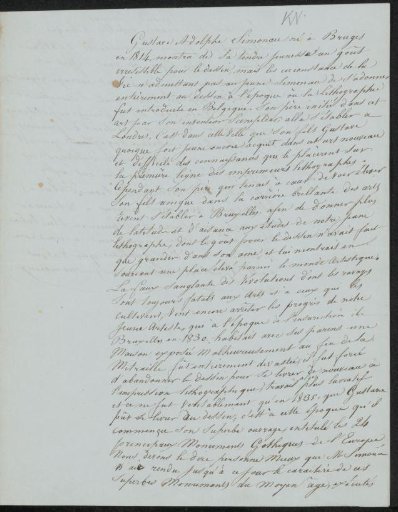 KN.
Gustave Adolphe Simonau né à Bruges
en 1814, montra dès sa tendre jeunesse un goût
irrésistible pour le dessin, mais les circonstances de la
vie n'admettant pas au jeune Simonau de s'adonner
entièrement au dessin à l'époque où la lithographie
fut introduite en Belgique. Son père initié dans cet
art par son intention alla s'établir à
Londres. C'est dans cette ville que son fils Gustave
quoique fort jeune encore acquit dans cet art nouveau
et difficile des connaissances qui le placèrent sur
la première ligne des imprimeurs lithographes.
Cependant son père qui tenait à cœur de voir élever
son fils unique dans la carrière brillante des arts
revint s'établir à Bruxelles afin de donner plus
de latitude et d'aisance aux études de notre jeune
lithographe, dont le goût pour le dessin n'avait fait
que grandir dans son âme, et lui montrait en
souvenir une place élevée parmi le monde Artistique.
La faux sanglante des révolutions dont les ravages
sont toujours fatals aux Arts et à ceux que les
cultivent, vint encore arrêter les progrès de notre
jeune Artiste, qui à l'époque de
Bruxelles en 1830, habitait avec ses parens une
Maison exposée Malheureusement au feu de la
Mitraille fut entièrement dévastée et fut forcé
d'abandonner le dessin pour se livrer de nouveau à
l'impression lithographique travail plus lucratif
et ce ne fut véritablement qu'en 1835 que Gustave
put se livrer au dessin, c'est à cette époque qu'il
commença son superbe ouvrage intitulé les 24
Monuments Gothiques de l'Europe.
Nous devons le dire personne Mieux que Mr Simonau
n'a rendu jusqu'à ce jour le caractère de ces
superbes Monuments du Moyen âge,